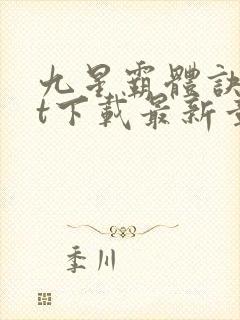 九星霸體訣
t下載最新
季川